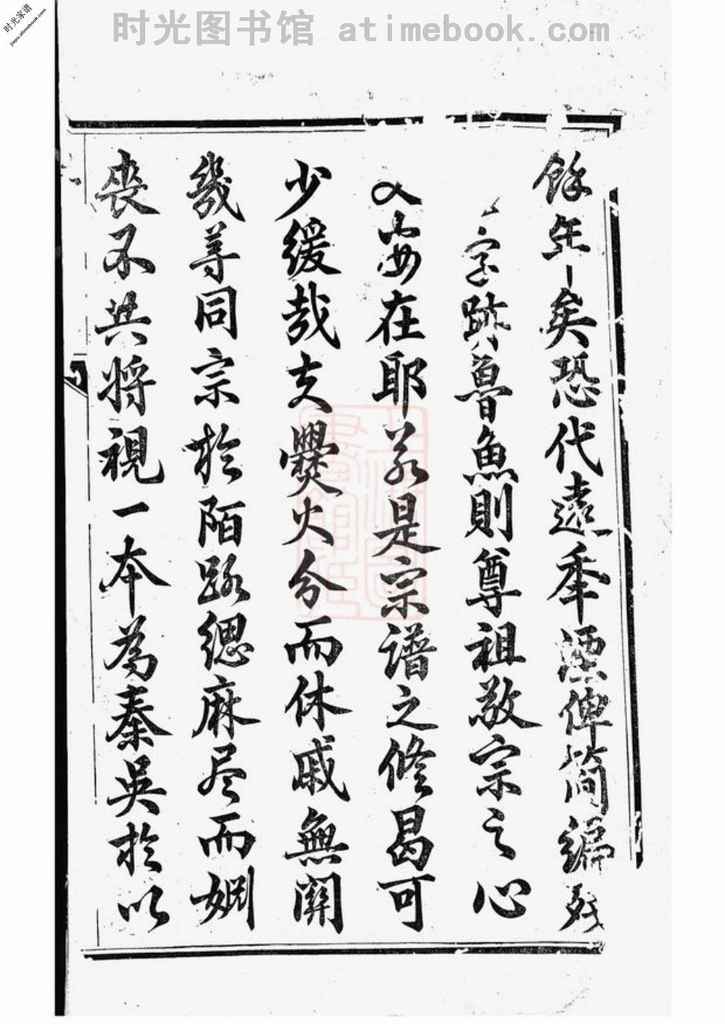 时光图书馆 atimebook.com
时光家谱
餘年矣恐代遠年湮俾简编残
字跡魯魚則尊祖敬宗之心
又安在耶若是宗譜之修曷可
少緩哉夫爨火分而休戚無關
幾等同宗於陌路缌麻尽而婣
喪不共将視一本為秦吳於以